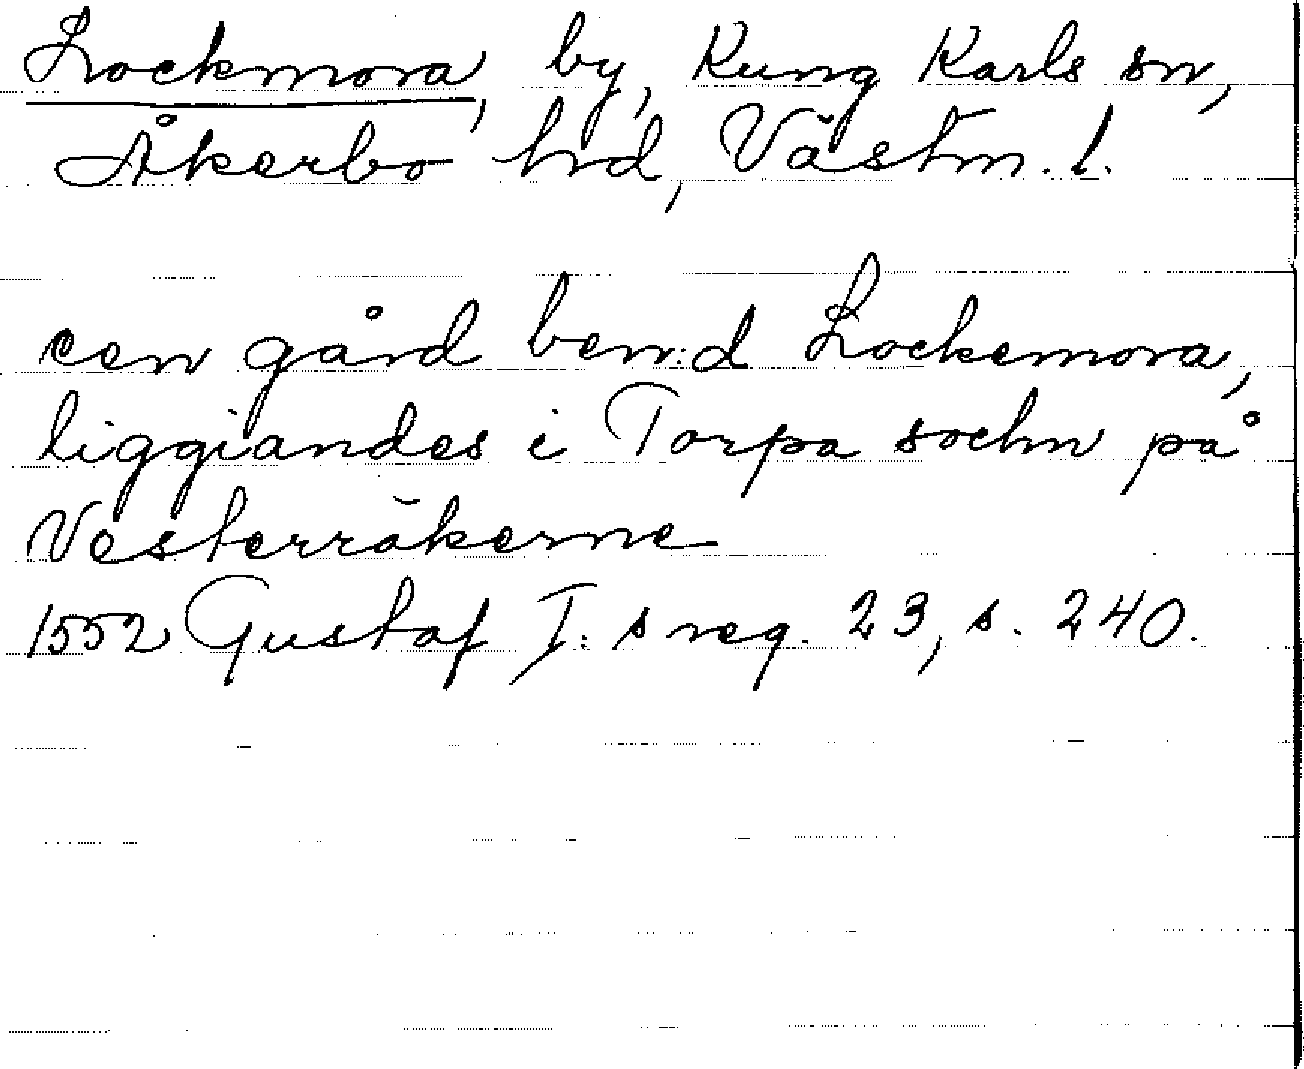 Lockmora, by, Kung Karls sn,
Åkerbo hd, Västm. l.
een gård ben:d Lockemora,
liggiandes i Torpa sochn på
Vesterråkerne
1552 Gustaf I:s reg. 23, s. 240.